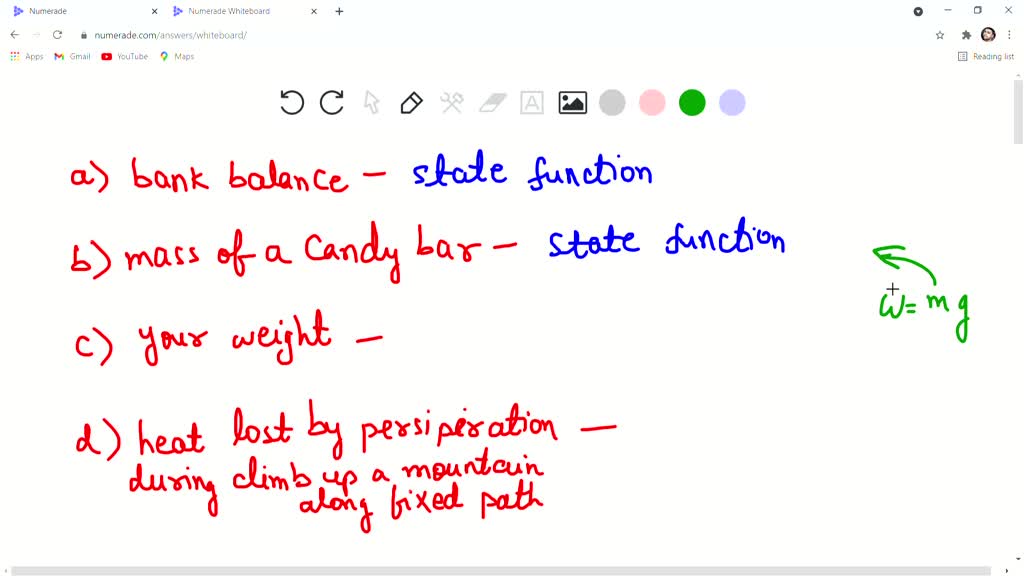 Numerade
Numerade Whiteboard
numerade.com/answers/whiteboard/
Apps Gmail YouTube Maps Reading list
A
a) bank balance - state function
b) mass of a candy bar - state function
W = mg
c) your weight -
d) heat lost by persiperation -
during climb up a mountain
along fixed path